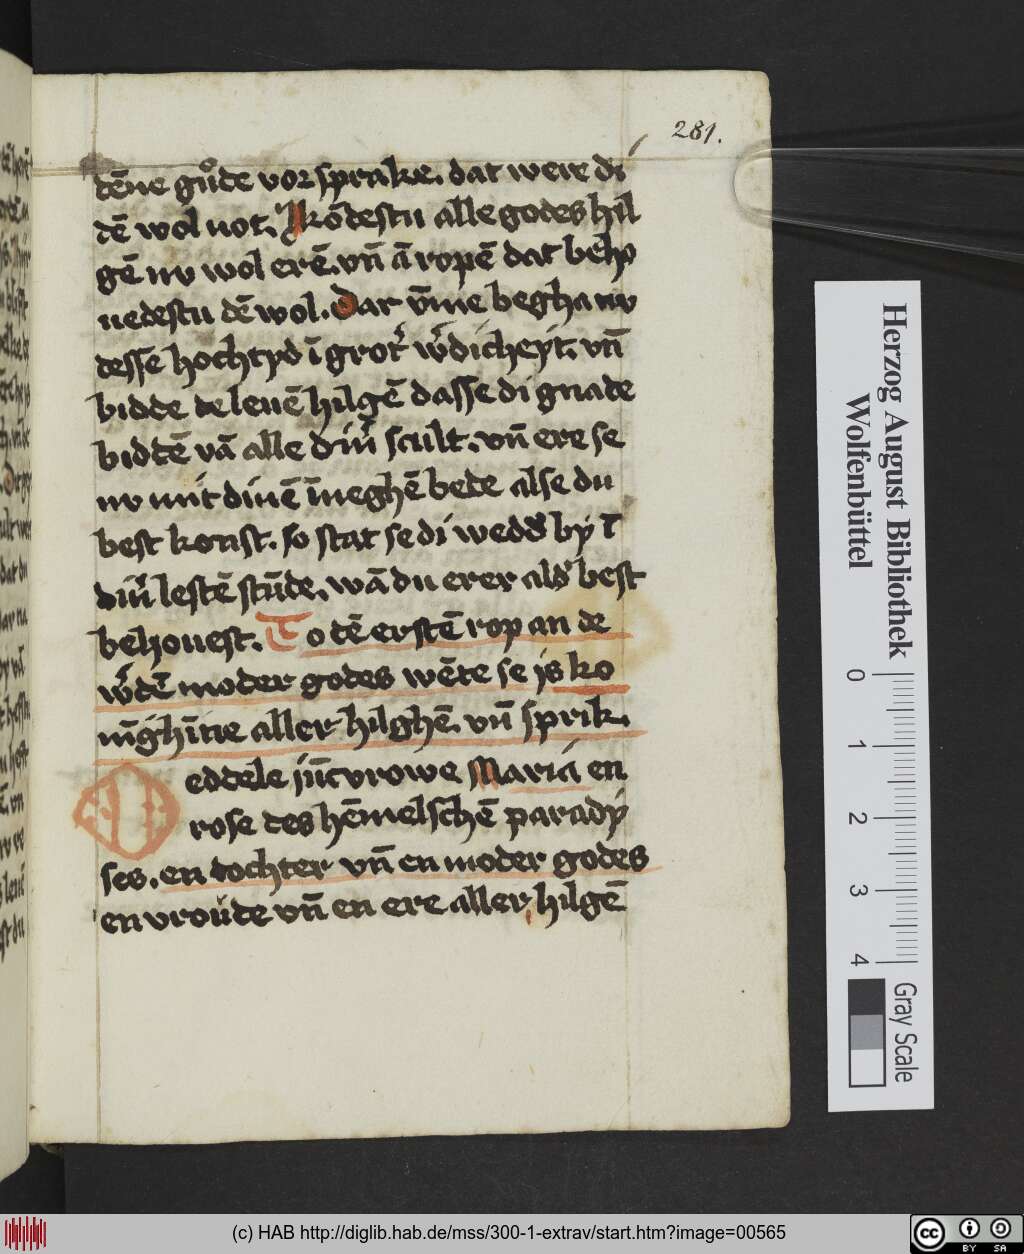 281.
dēne gůde vor sprake. dat were di
dē wol not. kōdestu alle godes hil
gē nv wol erē. vn̄ ā ropē dat behͦ
uedestu dē wol. Dar v̄me begha nv
desse hochtyd ī grot' w'dicheyt. vn̄
bidde de leuē hilgē dasse di gnade
biddē vā alle din' scult. vn̄ ere se
nv mit dinē īneghē bede alse du
best konst. so stat se di wedd' by ī
din' lestē stūde. wā du erer ald' best
behouest. To dē erstē rop an de
w'dē moder godes wēte se is ko
nīghīne aller hilghē. vn̄ sprik.
O eddele jūcvrowe Maria en
rose des hēmelschē parady
ses. en dochter vn̄ en moder godes
en vroude vn̄ en ere aller hilgē
Herzog August Bibliothek
Wolfenbüttel
0 1 2 3 4
Gray Scale
(c) HAB http://diglib.hab.de/mss/300-1-extrav/start.htm?image=00565
cc BY SA